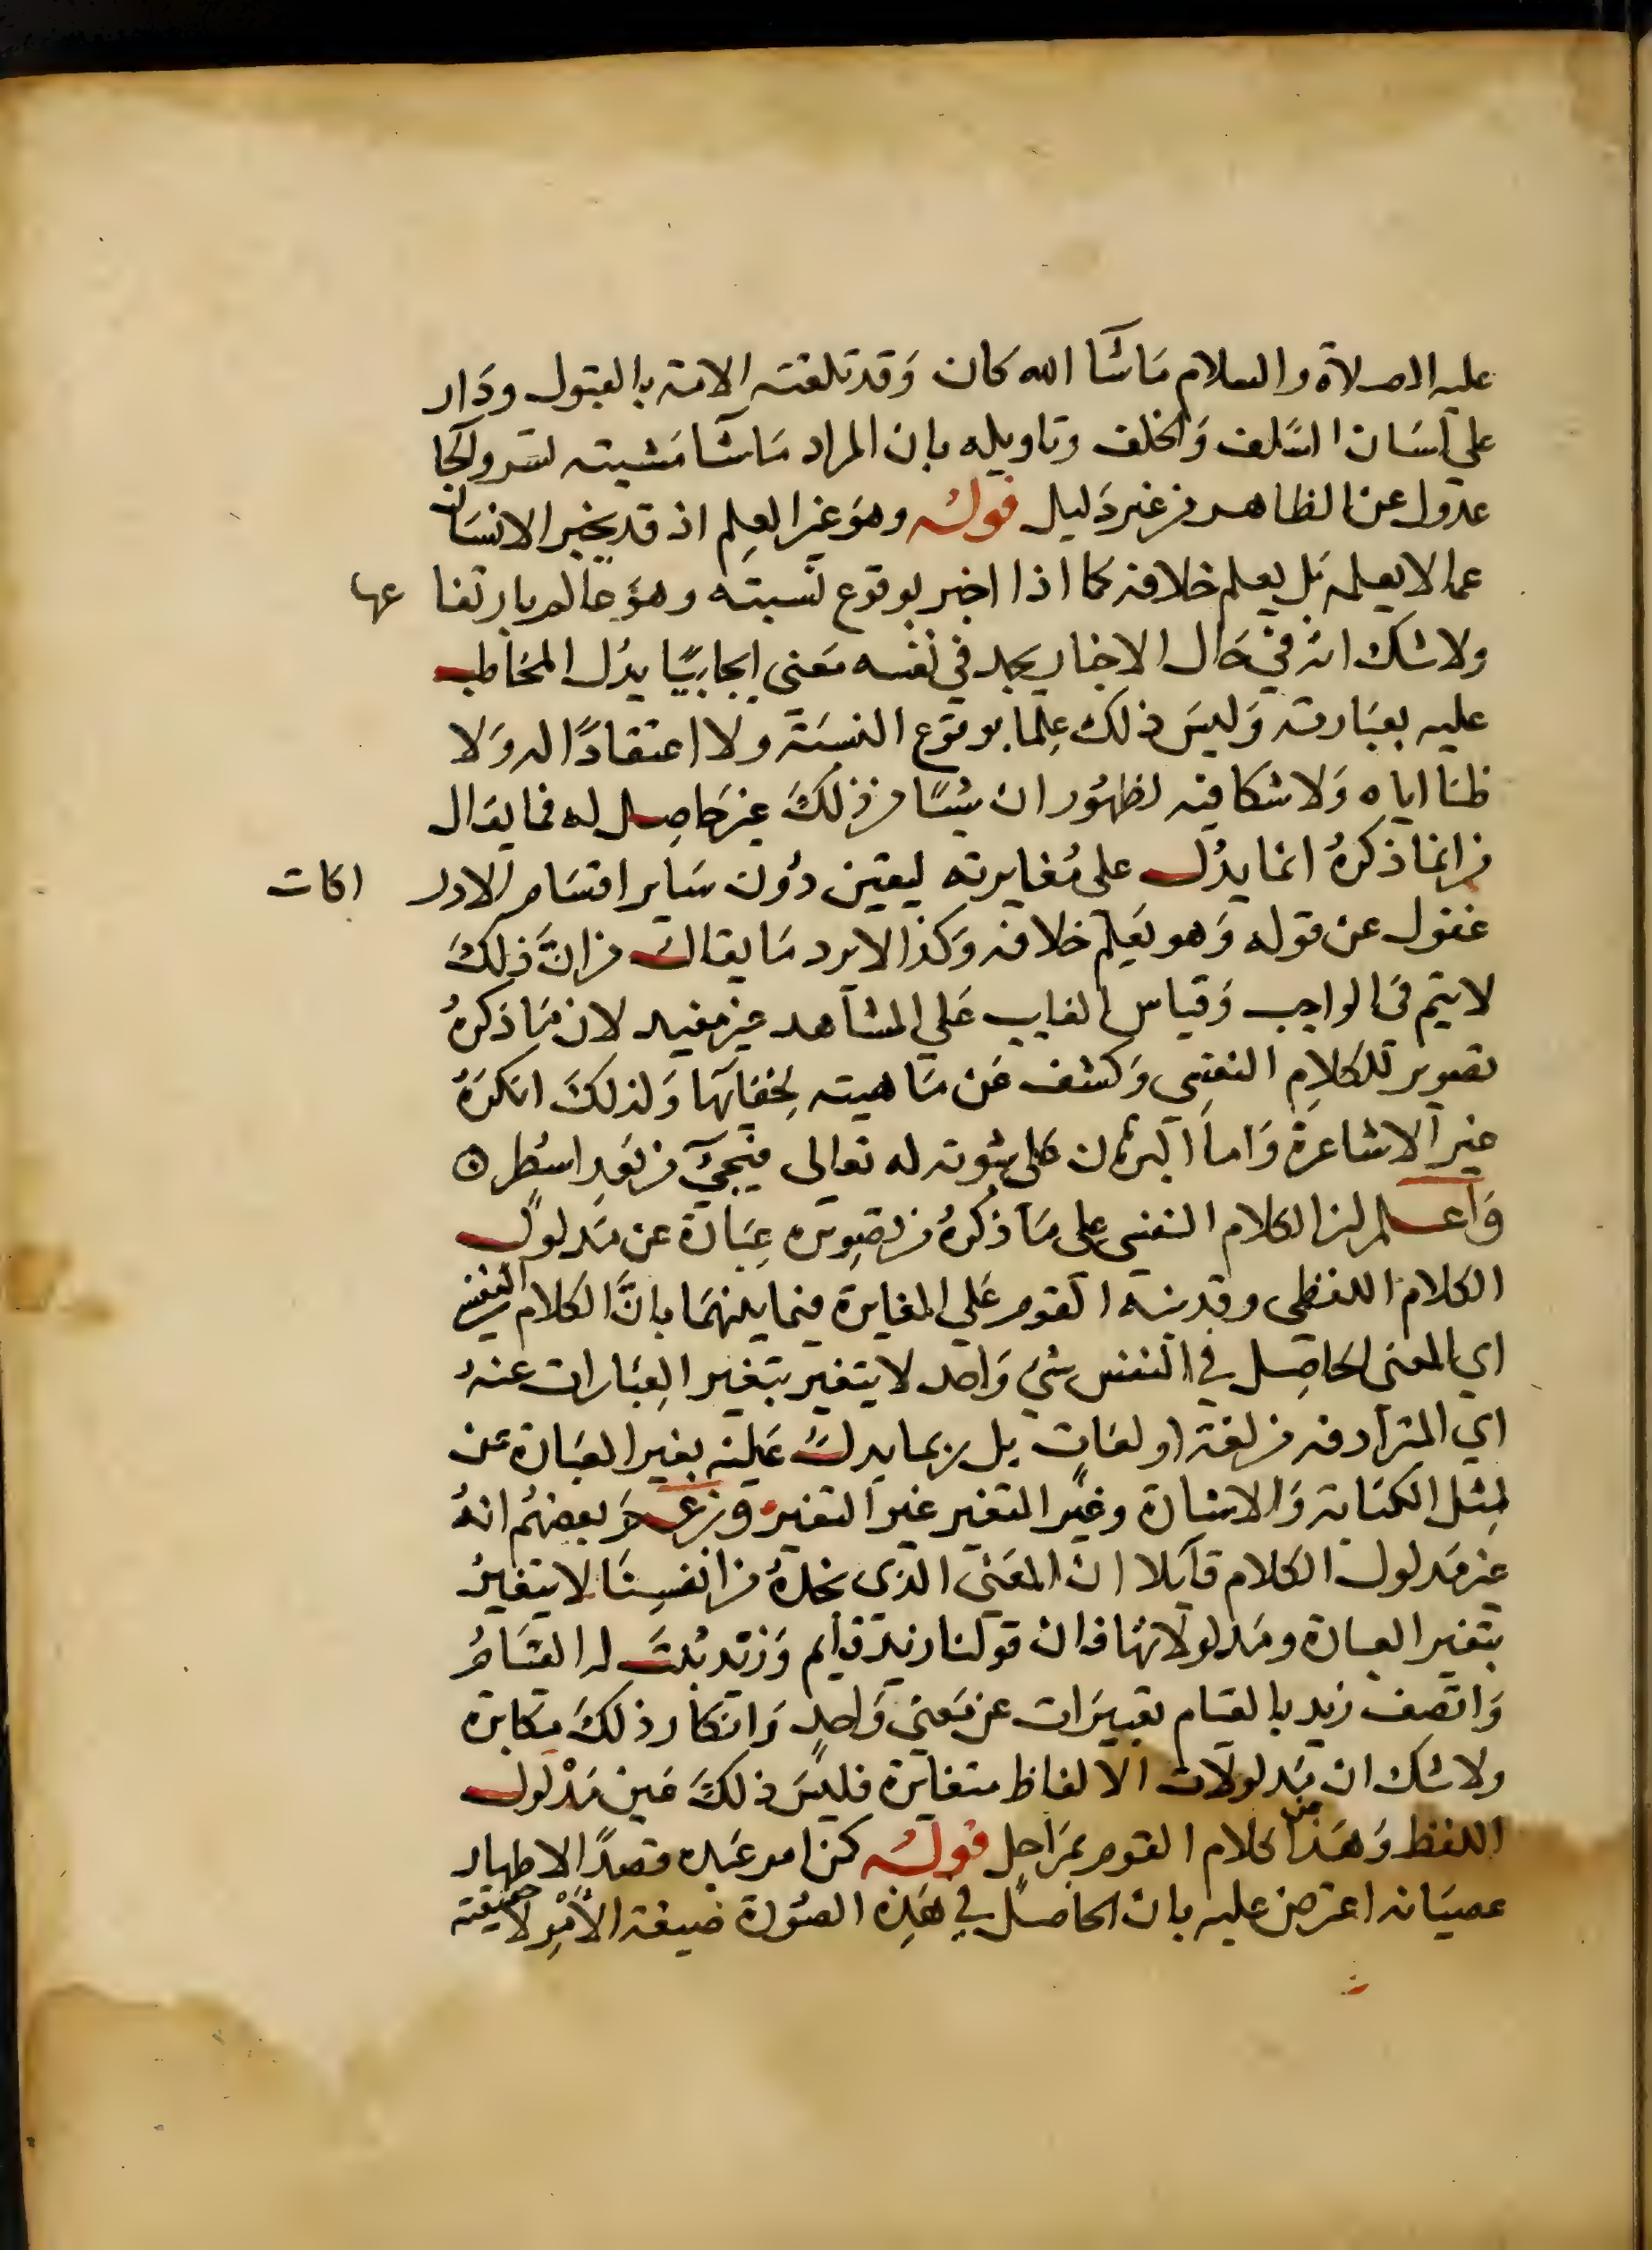 عليه الصلاة والسلام مَا شَآ الله كان وَقد تلقته الامة بالقبول ودَار
على لسَان السَّلف وَالخلف وتاويله بان المراد مَا شَآ مَشيته لتسرو الجا
عدول عن الظاهر من غير دَليل قولـه وهوَ غير العِلم اذ قد يخبر الانسَان
عما لا يعلمه بَل يعلم خلافه كما اذا اخبر بوقوع نسبته وهوَ عالم بارتفا عها
ولا شك انه في حَال الاخبار يجد في نفسه مَعنى ايجابيًا يدُل المخاطب
عليه بعبَارته وَليسَ ذلك عِلمًا بوقوع النسبَة ولا اعتقادًا له وَلا
ظنا اياه وَلا شكا فيه لظهُور ان شيئًا من ذلكَ غير حَاصِل له فما يقال
من انما ذكرهُ انما يدُل على مُغايرته ليقين دوُن سَاير اقسَام الادر اكات
غفول عن قوله وَهو يَعلم خلافه وَكذا لا يرد مَا يقال من انَّ ذلكَ
لا يتم في الواجب وَقياس الغايب عَلي المشاهد غير مفيد لان مَا ذكرهُ
تصوير للكلامِ النفسِي وَكشف عَن مَاهيته لخفآئها وَلذلكَ انكرَهُ
غير الاشاعرة وَاما البرهان على ثبوته له تعالى فيجيَ من بَعدِ اسْطر
وَاعـلم ان الكلام النفسى على مَا ذكرهُ من تصويره عبَارَة عن مَدلول
الكلام اللفظى وقد نبه القوم عَلي المغايرة فيما بينهمَا بانَّ الكلام النفسي
اي المعنى الحاصِل في النفس شيَ وَاحد لا يتغير بتغير العِبَارات عنهُ
اي المترادفه من لغة او لغات بل ربما يدل عَليه بغير العبَارة عن
مِثل الكتابة وَالاشارة وغير المتغير غير المتغير وزعم بعضهُم انهُ
غير مَدلول الكلام قآيلا ان المعَنى الذى نجدهُ من انفسِنَا لا يتغيرُ
بتغير العبارة ومَدلولاتهَا فان قولنا زيد قايم وَزيد ثبتَ له القيَامُ
وَاتصف زيد بالقيام تعبيرَات عن مَعنى وَاحدٍ وَانكار ذلكَ مكابرة
ولا شك ان مَدلولات الالفاظ متغايرة فليسَ ذلكَ عَين مَدْلول
اللفظ وَهَذا من كلام القوم بمَراحِل قولـه كمن امر عَبده قصدًا لاظهار
عصيَانه اعترض عليه بان الحاصل في هَذِه الصوُرة صيغة الأَمْرِ لا حقيقته